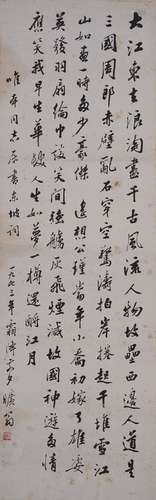 大江東去浪淘盡千古風流人物故壘西邊人道是
三國周郎赤壁亂石穿空驚濤拍岸捲起千堆雪江
山如畫一時多少豪傑 遙想公瑾當年小喬初嫁了雄姿
英發羽扇綸巾談笑間強艣灰飛煙滅故國神遊多情
應笑我早生華髮人生如夢一樽還酹江月
同志屬書東坡詞
一九七三年霜降前夕 翁